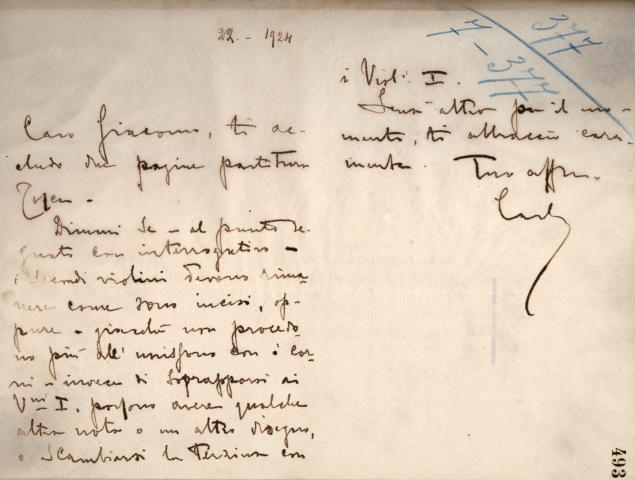 22. - 1924
377
7 - 377
Caro Giacomo, ti ac-
cludo due pagine partitura
Tosca -
Dimmi se - al punto se-
gnato con interrogativo -
i secondi violini devono rima-
nere come sono incisi, op-
pure - giacchè non procedo-
no più all'unissono con i cor-
ni - invece di sovrapporsi ai
Vni I. possono avere qualche
altra nota o un altro disegno,
o scambiarsi la terzina con
i Viol. I.
Senz'altro per il mo-
mento, ti abbraccio cara-
mente. Tuo affmo.
Carlo
493